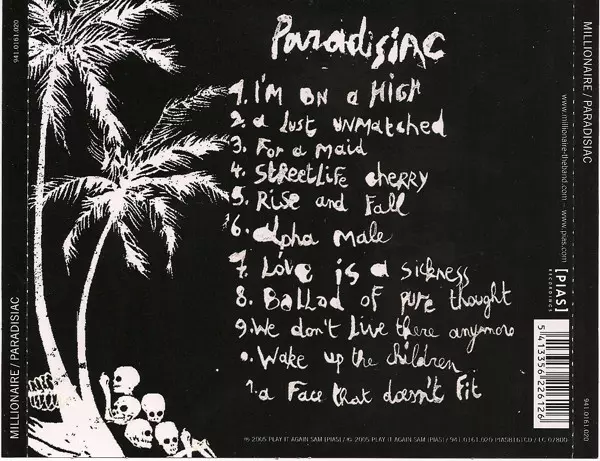 Paradisiac
1. I'm on a High
2. a Lust unmatched
3. For a maid
4. Streetlife cherry
5. Rise and Fall
6. alpha male
7. Love is a sickness
8. Ballad of pure thought
9. We don't Live there anymore
0. Wake up the children
1. a Face that doesn't Fit
941.0161.020
MILLIONAIRE / PARADISIAC
MILLIONAIRE / PARADISIAC
www.millionaire-theband.com – www.pias.com
[PIAS]
RECORDINGS
5 413356 226126
941.0161.020
℗ 2005 PLAY IT AGAIN SAM [PIAS] / © 2005 PLAY IT AGAIN SAM [PIAS] / 941.0161.020 / LC 07800